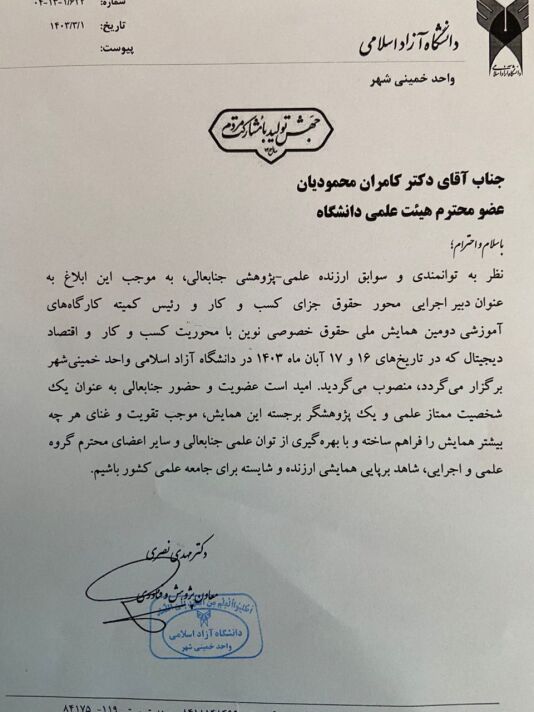 شماره: ۰۴-۱۳-۱/۶۲۲
تاریخ: ۱۴۰۳/۳/۱
پیوست:
دانشگاه آزاد اسلامی
واحد خمینی شهر
جهش تولید با مشارکت مردم
جناب آقای دکتر کامران محمودیان
عضو محترم هیئت علمی دانشگاه
باسلام و احترام؛
نظر به توانمندی و سوابق ارزنده علمی-پژوهشی جنابعالی، به موجب این ابلاغ به
عنوان دبیر اجرایی محور حقوق جزای کسب و کار و رئیس کمیته کارگاه‌های
آموزشی دومین همایش ملی حقوق خصوصی نوین با محوریت کسب و کار و اقتصاد
دیجیتال که در تاریخ‌های ۱۶ و ۱۷ آبان ماه ۱۴۰۳ در دانشگاه آزاد اسلامی واحد خمینی‌شهر
برگزار می‌گردد، منصوب می‌گردید. امید است عضویت و حضور جنابعالی به عنوان یک
شخصیت ممتاز علمی و یک پژوهشگر برجسته این همایش، موجب تقویت و غنای هر چه
بیشتر همایش را فراهم ساخته و با بهره‌گیری از توان علمی جنابعالی و سایر اعضای محترم گروه
علمی و اجرایی، شاهد برپایی همایشی ارزنده و شایسته برای جامعه علمی کشور باشیم.
دکتر مهدی نصری
معاون پژوهش و فناوری
دانشگاه آزاد اسلامی
واحد خمینی شهر
۸۴۱۷۵-۱۱۹